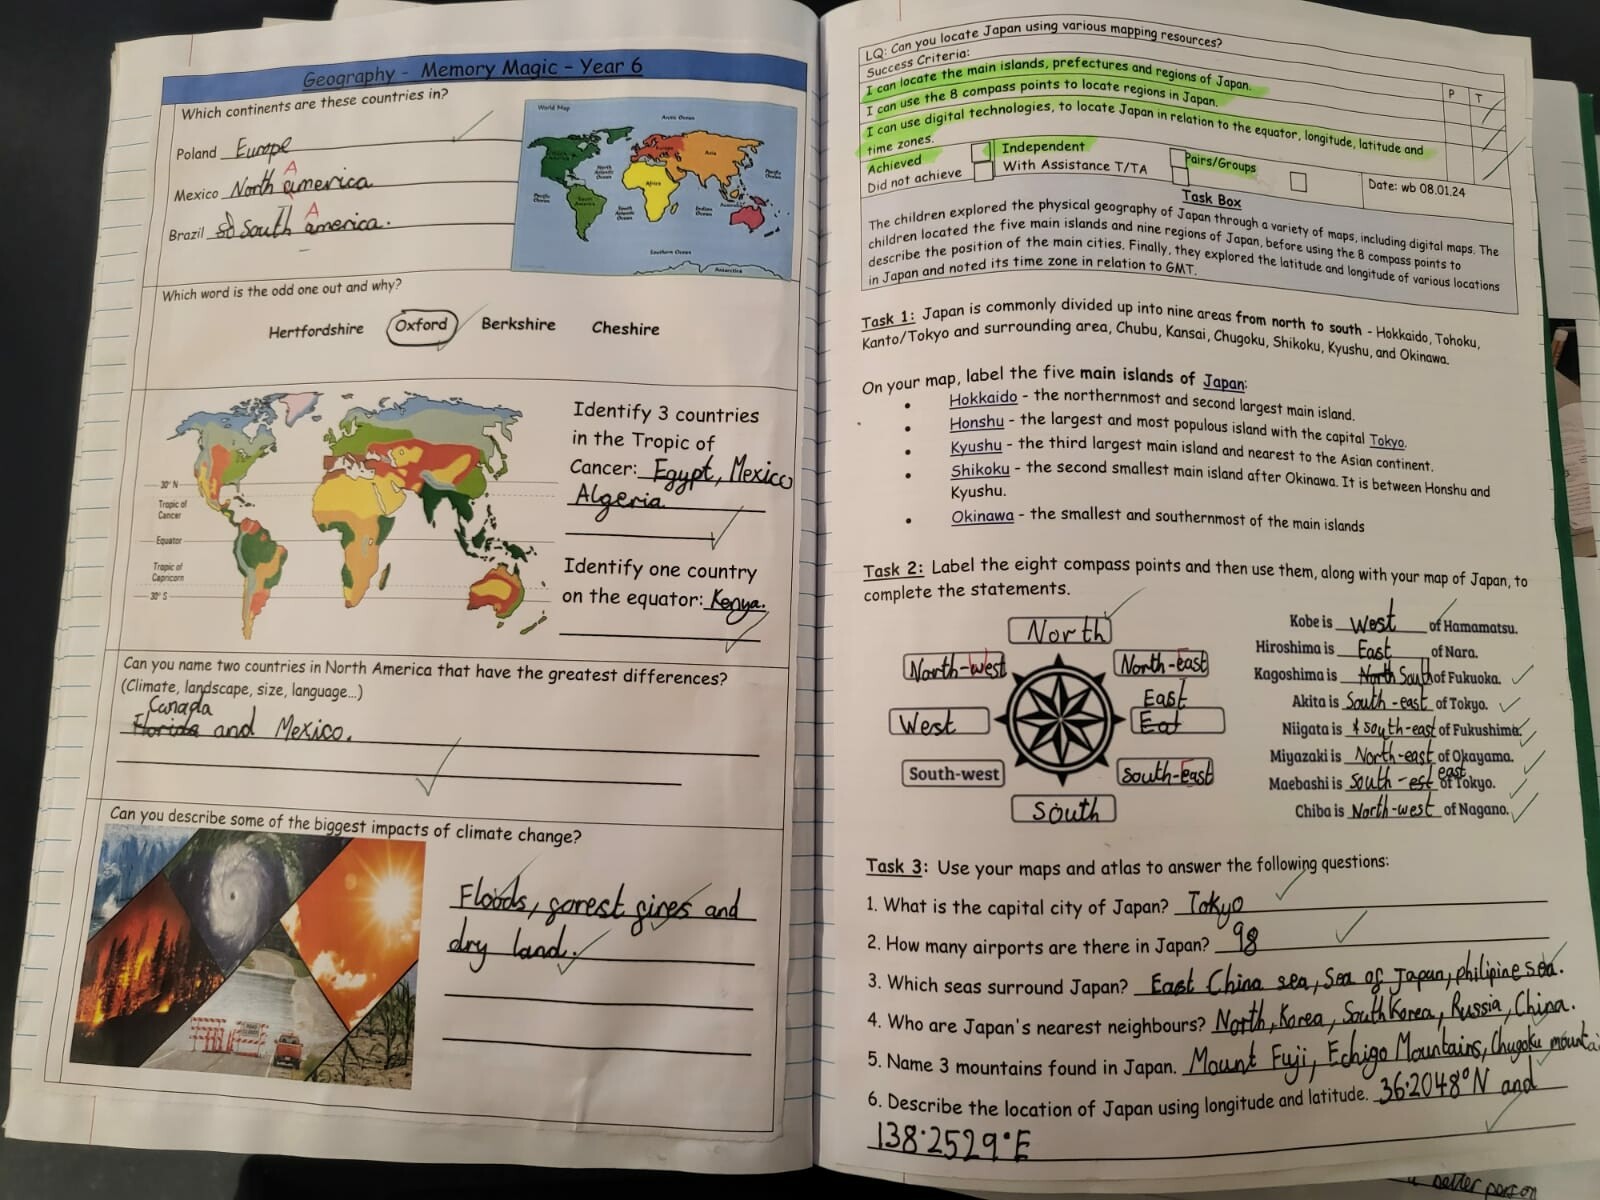 Geography - Memory Magic - Year 6
Which continents are these countries in?
Poland Europe
A
Mexico North america
A
Brazil South america.
World Map
Arctic Ocean
North America
Europe
Asia
North Atlantic Ocean
Pacific Ocean
Pacific Ocean
Africa
South America
South Atlantic Ocean
Indian Ocean
Australia
Southern Ocean
Antarctica
Which word is the odd one out and why?
Hertfordshire Oxford Berkshire Cheshire
Identify 3 countries
in the Tropic of
Cancer: Egypt, Mexico
Algeria.
30° N
Tropic of
Cancer
Equator
Tropic of
Capricorn
30° S
Identify one country
on the equator: Kenya.
Can you name two countries in North America that have the greatest differences?
(Climate, landscape, size, language...)
Canada
Florida and Mexico.
Can you describe some of the biggest impacts of climate change?
Floods, forest fires and
dry land.
LQ: Can you locate Japan using various mapping resources?
Success Criteria:
P T
I can locate the main islands, prefectures and regions of Japan.
I can use the 8 compass points to locate regions in Japan.
I can use digital technologies, to locate Japan in relation to the equator, longitude, latitude and
time zones.
Achieved Independent Pairs/Groups
Did not achieve With Assistance T/TA Date: wb 08.01.24
Task Box
The children explored the physical geography of Japan through a variety of maps, including digital maps. The
children located the five main islands and nine regions of Japan, before using the 8 compass points to
describe the position of the main cities. Finally, they explored the latitude and longitude of various locations
in Japan and noted its time zone in relation to GMT.
Task 1: Japan is commonly divided up into nine areas from north to south - Hokkaido, Tohoku,
Kanto/Tokyo and surrounding area, Chubu, Kansai, Chugoku, Shikoku, Kyushu, and Okinawa.
On your map, label the five main islands of Japan:
• Hokkaido - the northernmost and second largest main island.
• Honshu - the largest and most populous island with the capital Tokyo.
• Kyushu - the third largest main island and nearest to the Asian continent.
• Shikoku - the second smallest main island after Okinawa. It is between Honshu and
Kyushu.
• Okinawa - the smallest and southernmost of the main islands
Task 2: Label the eight compass points and then use them, along with your map of Japan, to
complete the statements.
North
North-west
North-east
East
West
Eat
South-west
South-east
South
Kobe is West of Hamamatsu.
Hiroshima is East of Nara.
Kagoshima is North South of Fukuoka.
Akita is South-east of Tokyo.
Niigata is south-east of Fukushima.
Miyazaki is North-east of Okayama.
east
Maebashi is South-est of Tokyo.
Chiba is North-west of Nagano.
Task 3: Use your maps and atlas to answer the following questions:
1. What is the capital city of Japan? Tokyo
2. How many airports are there in Japan? 98
3. Which seas surround Japan? East China sea, Sea of Japan, philipine sea.
4. Who are Japan's nearest neighbours? North, Korea, South Korea, Russia, China.
5. Name 3 mountains found in Japan. Mount Fuji, Echigo Mountains, Chugoku mountai
6. Describe the location of Japan using longitude and latitude. 36.2048°N and
138.2529°E
better person